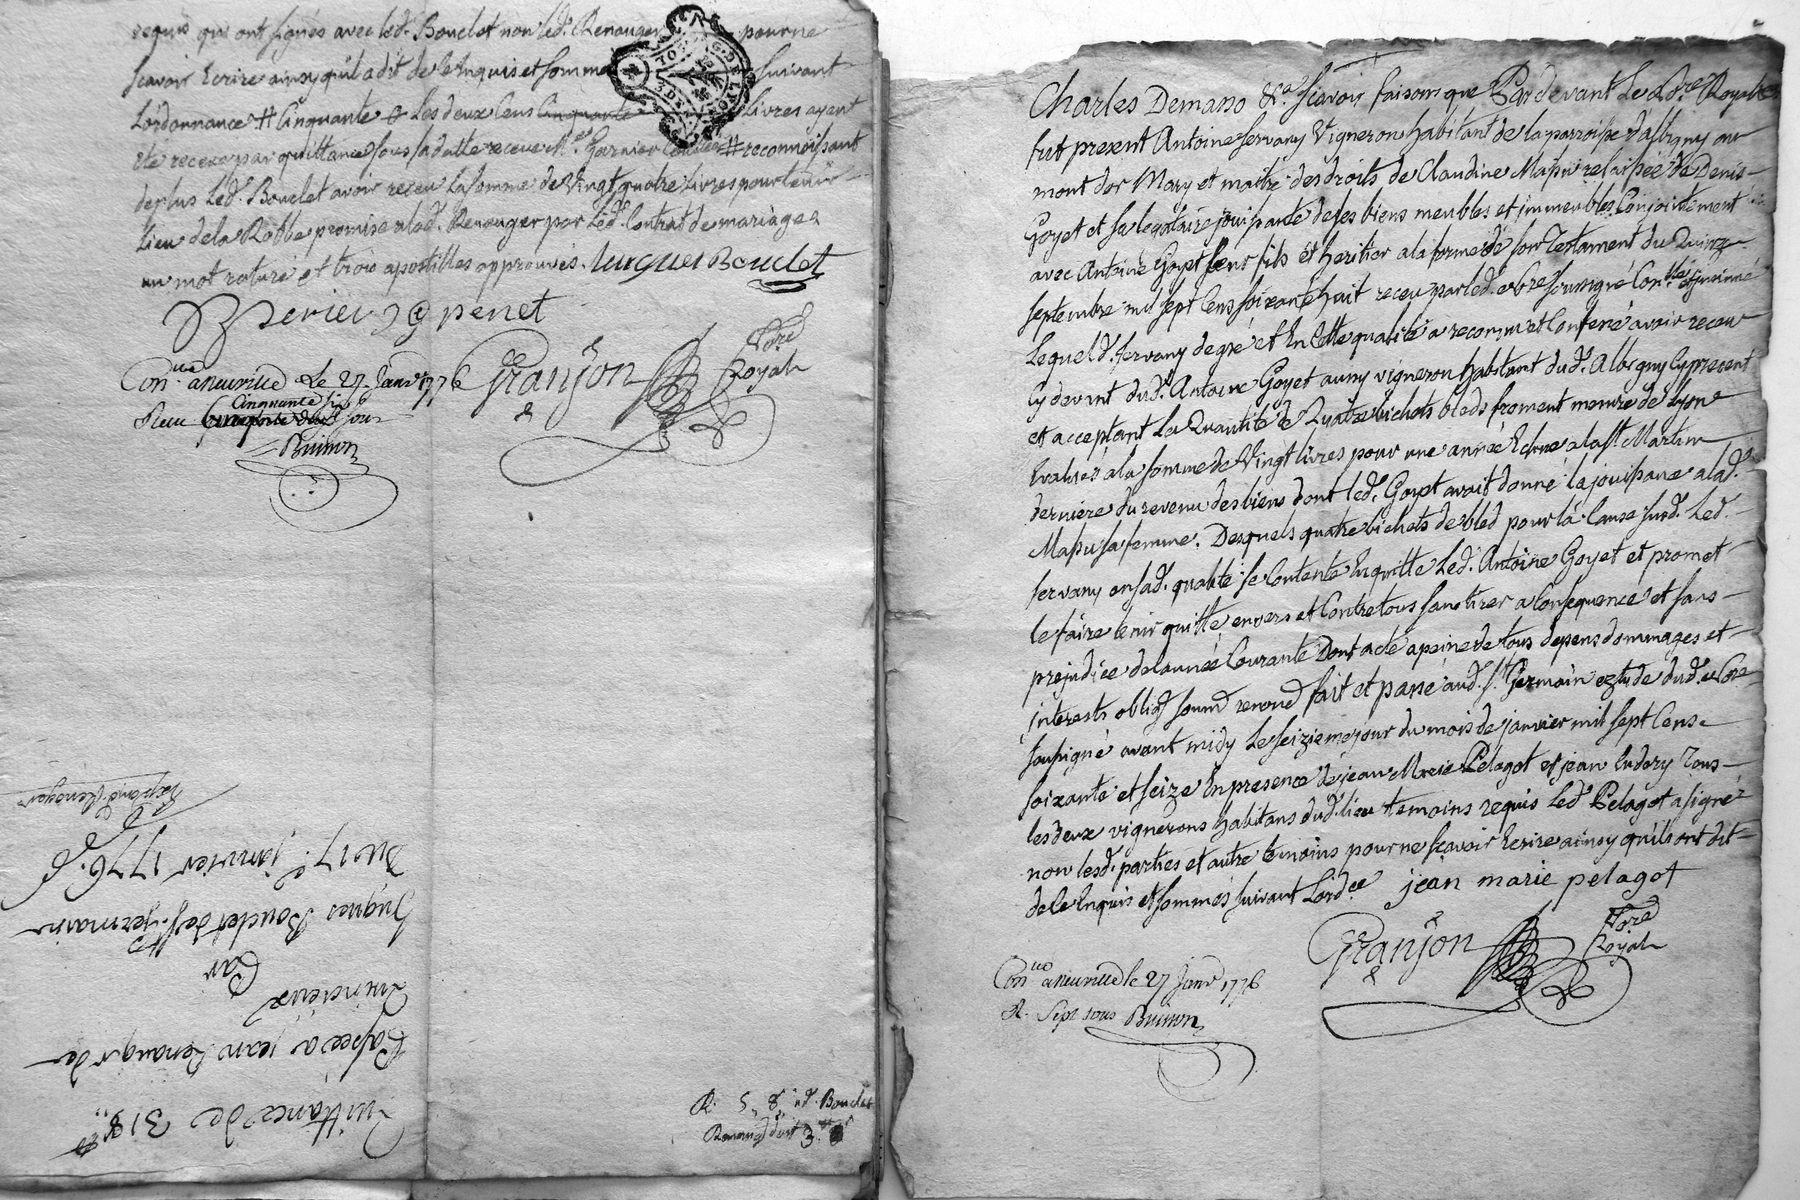 requis qui ont signés avec led. Bouclet non led. Renauger pour ne
scavoir Ecrire ainsy qu'il a dit de ce Enquis et sommé suivant
Lordonnance # Cinquante & Les deux Cens Cinquante Livres ayant
été receue par quittance sous sa datte receue Me. Garnier # reconnoissant
de plus Led. Bouclet avoir receu La somme de Vingt quatre Livres pour tenir
Lieu de la Robbe promise a lad. Renauger par Led. Contrat de mariage
un mot raturé et trois apostilles approuvés. hugues Bouclet
perier penet
Granjon & Nore Royal
Con. a neuville Le 27. Janv. 1776
Cinquante six
Reçu jour
Buisson
Quittance de 318
Passée a jean Renauger de
Quincieux
Par
hugues Bouclet de St. germain
Du 17e. janvier 1776.
R. 5 8 Bouclet
Charles Demasso &a. scavoir faisons que Pardevant Le Nre Royal
fut present Antoine servany Vigneron habitant de la parroisse dalbigny au
mont dor Mary et maitre des droits de Claudine Massu relaissée de Denis
Goyet et sa legataire jouissante de ses biens meubles et immeubles Conjointement
avec Antoine Goyet son fils et heritier a la forme de son Testament du Quinze
septembre mil sept Cens soixante huit receu par led. Nore soussigné Conllé et insinué
Lequel d. servany de gré et En Cette qualité a reconnu et Confessé avoir receu
Cy devant dud. Antoine Goyet aussy vigneron habitant dud. Albigny Cy present
et acceptant La Quantité de Quatre bichets bleds froment mesure de Lyon
Evalués a la somme de Vingt livres pour une année Echue a la St. Martin
derniere du revenu des biens dont led. Goyet avoit donné la jouissance a lad.
Massu sa femme. Desquels quatre bichets de bled pour la Cause susd. Led.
servany en sad. qualité se Contente En quitte Led. Antoine Goyet et promet
le faire tenir quitte envers et Contre tous sans tirer a Consequence et sans
prejudice de l'année Courante Dont acte a peine de tous depens dommages et
interests obligd soumd renond fait et passé aud. St. Germain etude dud. Nore
soussigné avant midy Le seizieme jour du mois de janvier mil sept Cens
soixante et seize En presence de jean Marie Pelagot et jean Tous
les deux vignerons habitans dud. lieu temoins requis Led. Pelagot a signé
non lesd. parties et autre temoins pour ne scavoir Ecrire ainsy qu'ils ont dit
de ce Enquis et sommés suivant Lordce jean marie pelagot
Granjon & Nore Royal
Con. a neuville le 27 Janv. 1776
R. Sept sous Buisson